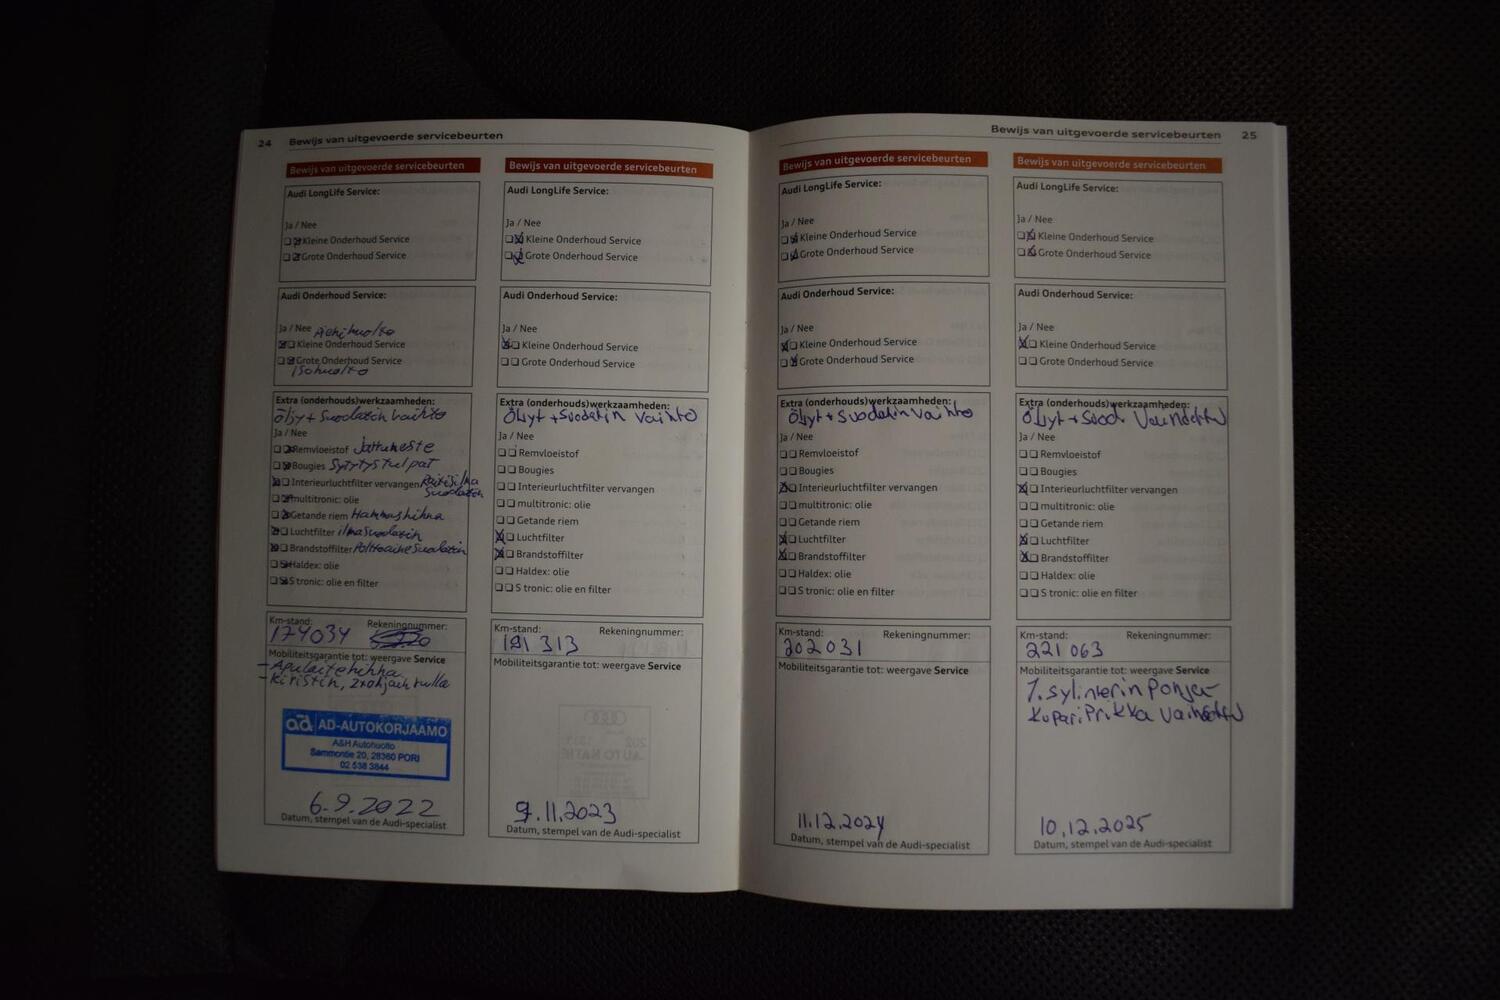 24 Bewijs van uitgevoerde servicebeurten
Bewijs van uitgevoerde servicebeurten
Audi LongLife Service:
Ja / Nee
Kleine Onderhoud Service
Grote Onderhoud Service
Audi Onderhoud Service:
Ja / Nee
Kleine Onderhoud Service
Grote Onderhoud Service
Isohuolto
Extra (onderhouds)werkzaamheden:
Öljy + Suodatin vaihto
Ja / Nee
Remvloeistof Jarruneste
Bougies Sytytystulpat
Interieurluchtfilter vervangen Raitisilma
Suodatin
multitronic: olie
Getande riem Hammashihna
Luchtfilter ilmasuodatin
Brandstoffilter Polttoainesuodatin
Haldex: olie
S tronic: olie en filter
Km-stand: Rekeningnummer:
174034
Mobiliteitsgarantie tot: weergave Service
- Apulaitehihna
- Kiristin, 2x ohjainrulla
ad AD-AUTOKORJAAMO
A&H Autohuolto
Sammontie 20, 28360 PORI
02 538 3844
6.9.2022
Datum, stempel van de Audi-specialist
Bewijs van uitgevoerde servicebeurten
Audi LongLife Service:
Ja / Nee
Kleine Onderhoud Service
Grote Onderhoud Service
Audi Onderhoud Service:
Ja / Nee
Kleine Onderhoud Service
Grote Onderhoud Service
Extra (onderhouds)werkzaamheden:
Öljyt + Suodatin vaihto
Ja / Nee
Remvloeistof
Bougies
Interieurluchtfilter vervangen
multitronic: olie
Getande riem
Luchtfilter
Brandstoffilter
Haldex: olie
S tronic: olie en filter
Km-stand: Rekeningnummer:
191 313
Mobiliteitsgarantie tot: weergave Service
9.11.2023
Datum, stempel van de Audi-specialist
Bewijs van uitgevoerde servicebeurten 25
Bewijs van uitgevoerde servicebeurten
Audi LongLife Service:
Ja / Nee
Kleine Onderhoud Service
Grote Onderhoud Service
Audi Onderhoud Service:
Ja / Nee
Kleine Onderhoud Service
Grote Onderhoud Service
Extra (onderhouds)werkzaamheden:
Öljyt + Suodatin vaihto
Ja / Nee
Remvloeistof
Bougies
Interieurluchtfilter vervangen
multitronic: olie
Getande riem
Luchtfilter
Brandstoffilter
Haldex: olie
S tronic: olie en filter
Km-stand: Rekeningnummer:
202 031
Mobiliteitsgarantie tot: weergave Service
11.12.2024
Datum, stempel van de Audi-specialist
Bewijs van uitgevoerde servicebeurten
Audi LongLife Service:
Ja / Nee
Kleine Onderhoud Service
Grote Onderhoud Service
Audi Onderhoud Service:
Ja / Nee
Kleine Onderhoud Service
Grote Onderhoud Service
Extra (onderhouds)werkzaamheden:
Öljyt + Suod
Ja / Nee
Remvloeistof
Bougies
Interieurluchtfilter vervangen
multitronic: olie
Getande riem
Luchtfilter
Brandstoffilter
Haldex: olie
S tronic: olie en filter
Km-stand: Rekeningnummer:
221 063
Mobiliteitsgarantie tot: weergave Service
1. sylinterin
kupariprikka vaihdettu
10.12.2025
Datum, stempel van de Audi-specialist